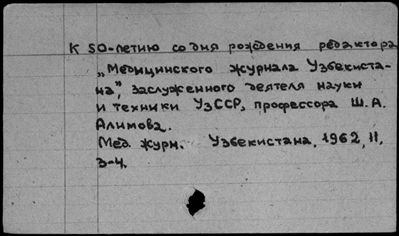 К 50-летию со дня рождения редактора
„Медицинского журнала Узбекиста-
на", заслуженного деятеля науки
и техники УзССР, профессора Ш. А.
Алимова.
Мед. журн. Узбекистана, 1962, 11,
3-4.